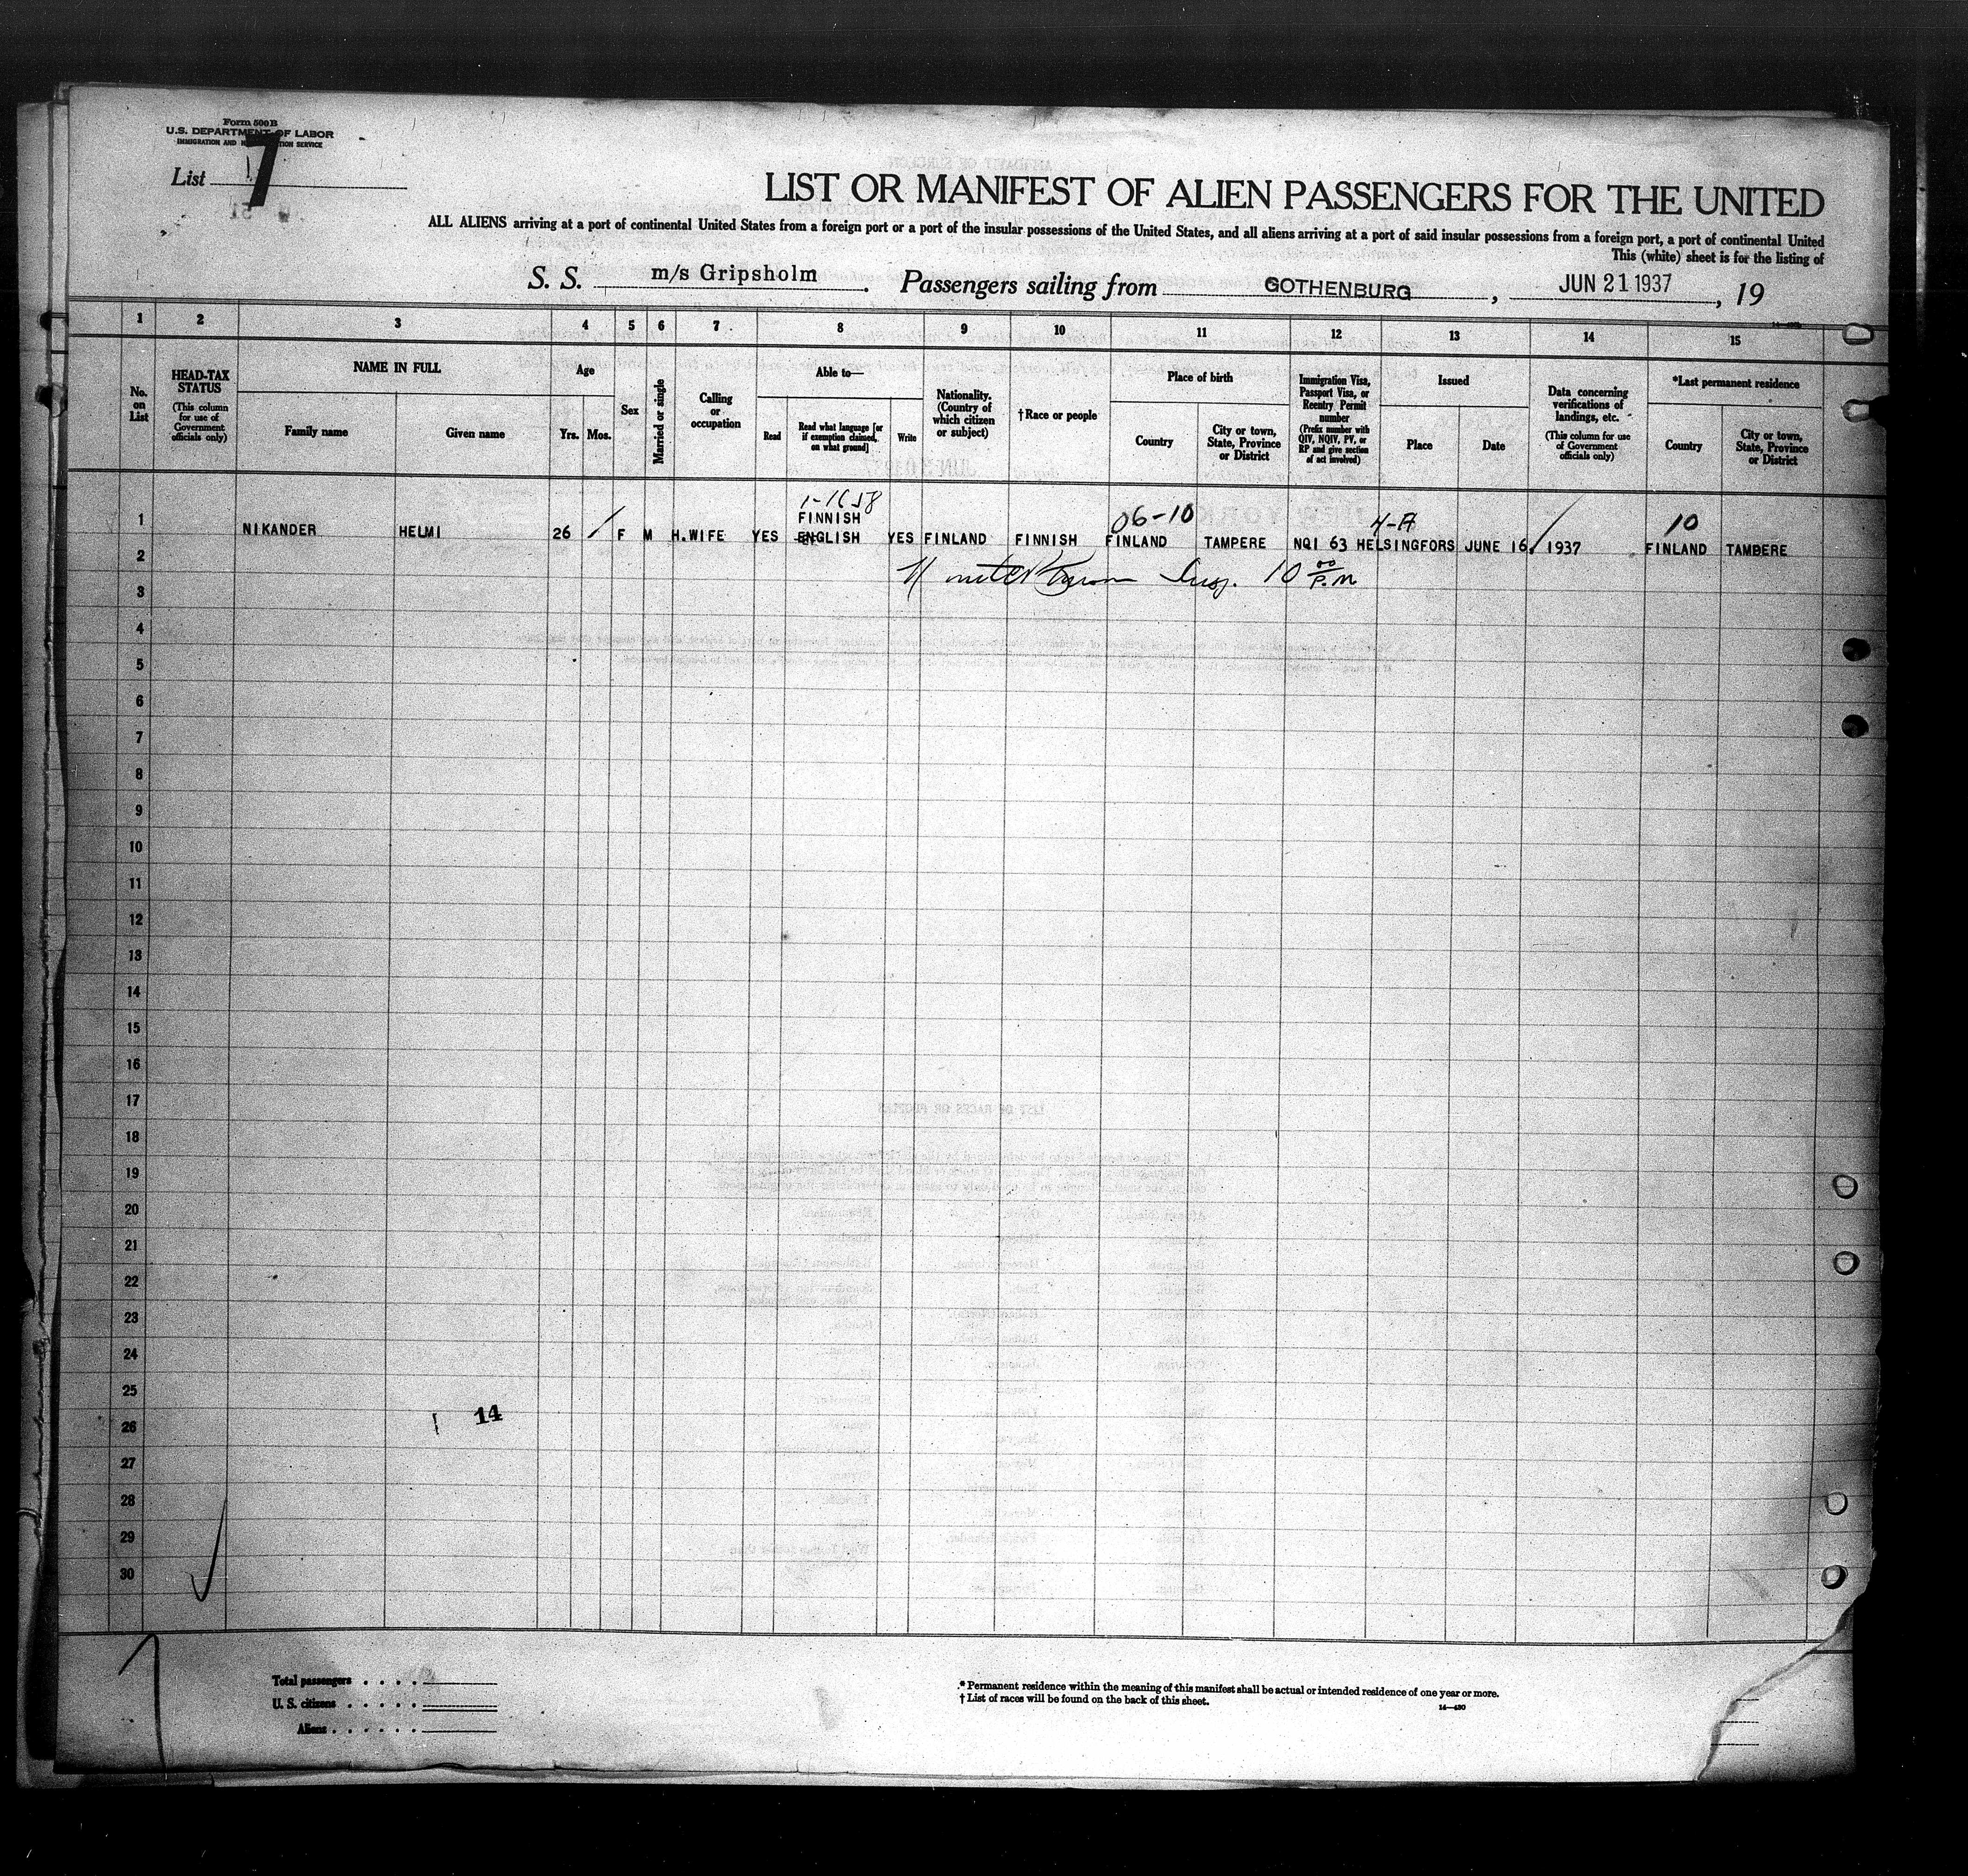 Form 500B
U.S. DEPARTMENT OF LABOR
IMMIGRATION AND NATURALIZATION SERVICE
List 7
LIST OR MANIFEST OF ALIEN PASSENGERS FOR THE UNITED
ALL ALIENS arriving at a port of continental United States from a foreign port or a port of the insular possessions of the United States, and all aliens arriving at a port of said insular possessions from a foreign port, a port of continental United
This (white) sheet is for the listing of
S. S. m/s Gripsholm. Passengers sailing from GOTHENBURG, JUN 21 1937, 19
1 2 3 4 5 6 7 8 9 10 11 12 13 14 15
No. on List
HEAD-TAX STATUS
(This column for use of Government officials only)
NAME IN FULL
Family name
Given name
Age
Yrs. Mos.
Sex
Married or single
Calling or occupation
Able to—
Read
Read what language [or if exemption claimed, on what ground]
Write
Nationality. (Country of which citizen or subject)
†Race or people
Place of birth
Country
City or town, State, Province or District
Immigration Visa, Passport Visa, or Reentry Permit number
(Prefix number with QIV, NQIV, PV, or RP and give section of act involved)
Issued
Place
Date
Data concerning verifications of landings, etc.
(This column for use of Government officials only)
*Last permanent residence
Country
City or town, State, Province or District
1-1658
06-10
4-A
10
1 NIKANDER HELMI 26 F M H.WIFE YES FINNISH ENGLISH YES FINLAND FINNISH FINLAND TAMPERE NQI 63 HELSINGFORS JUNE 16, 1937 FINLAND TAMBERE
Insp. 10 00 P.M
2
3
4
5
6
7
8
9
10
11
12
13
14
15
16
17
18
19
20
21
22
23
24
25
26
14
27
28
29
30
Total passengers
U. S. citizens
Aliens
* Permanent residence within the meaning of this manifest shall be actual or intended residence of one year or more.
† List of races will be found on the back of this sheet.
14—430